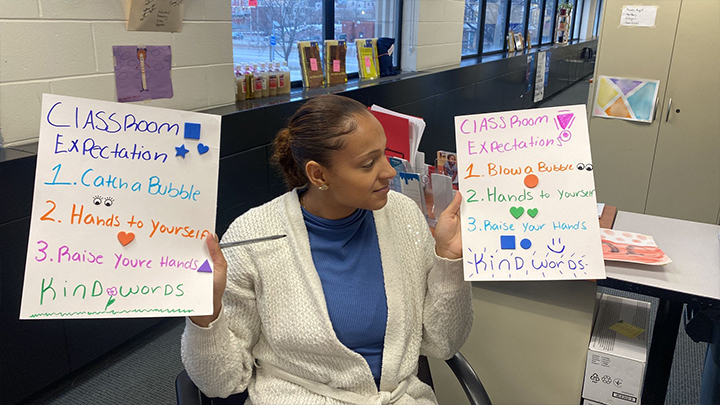 CLASSROOM
EXPectation
1. Catch a Bubble
2. Hands to Yourself
3. Raise Youre Hands
KinD words
CLASSROOM
Expectations
1. Blow a Bubble
2. Hands to Yourself
3. Raise Your Hands
KinD words